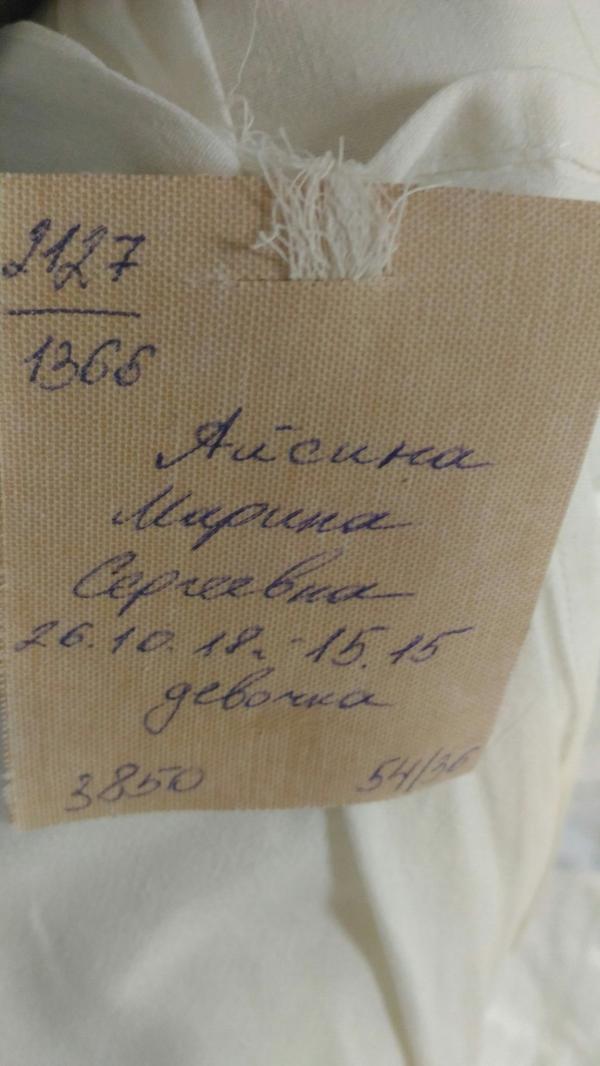 2127
1366
Айсина
Марина
Сергеевна
26.10.18г.-15.15
девочка
3850 54/36